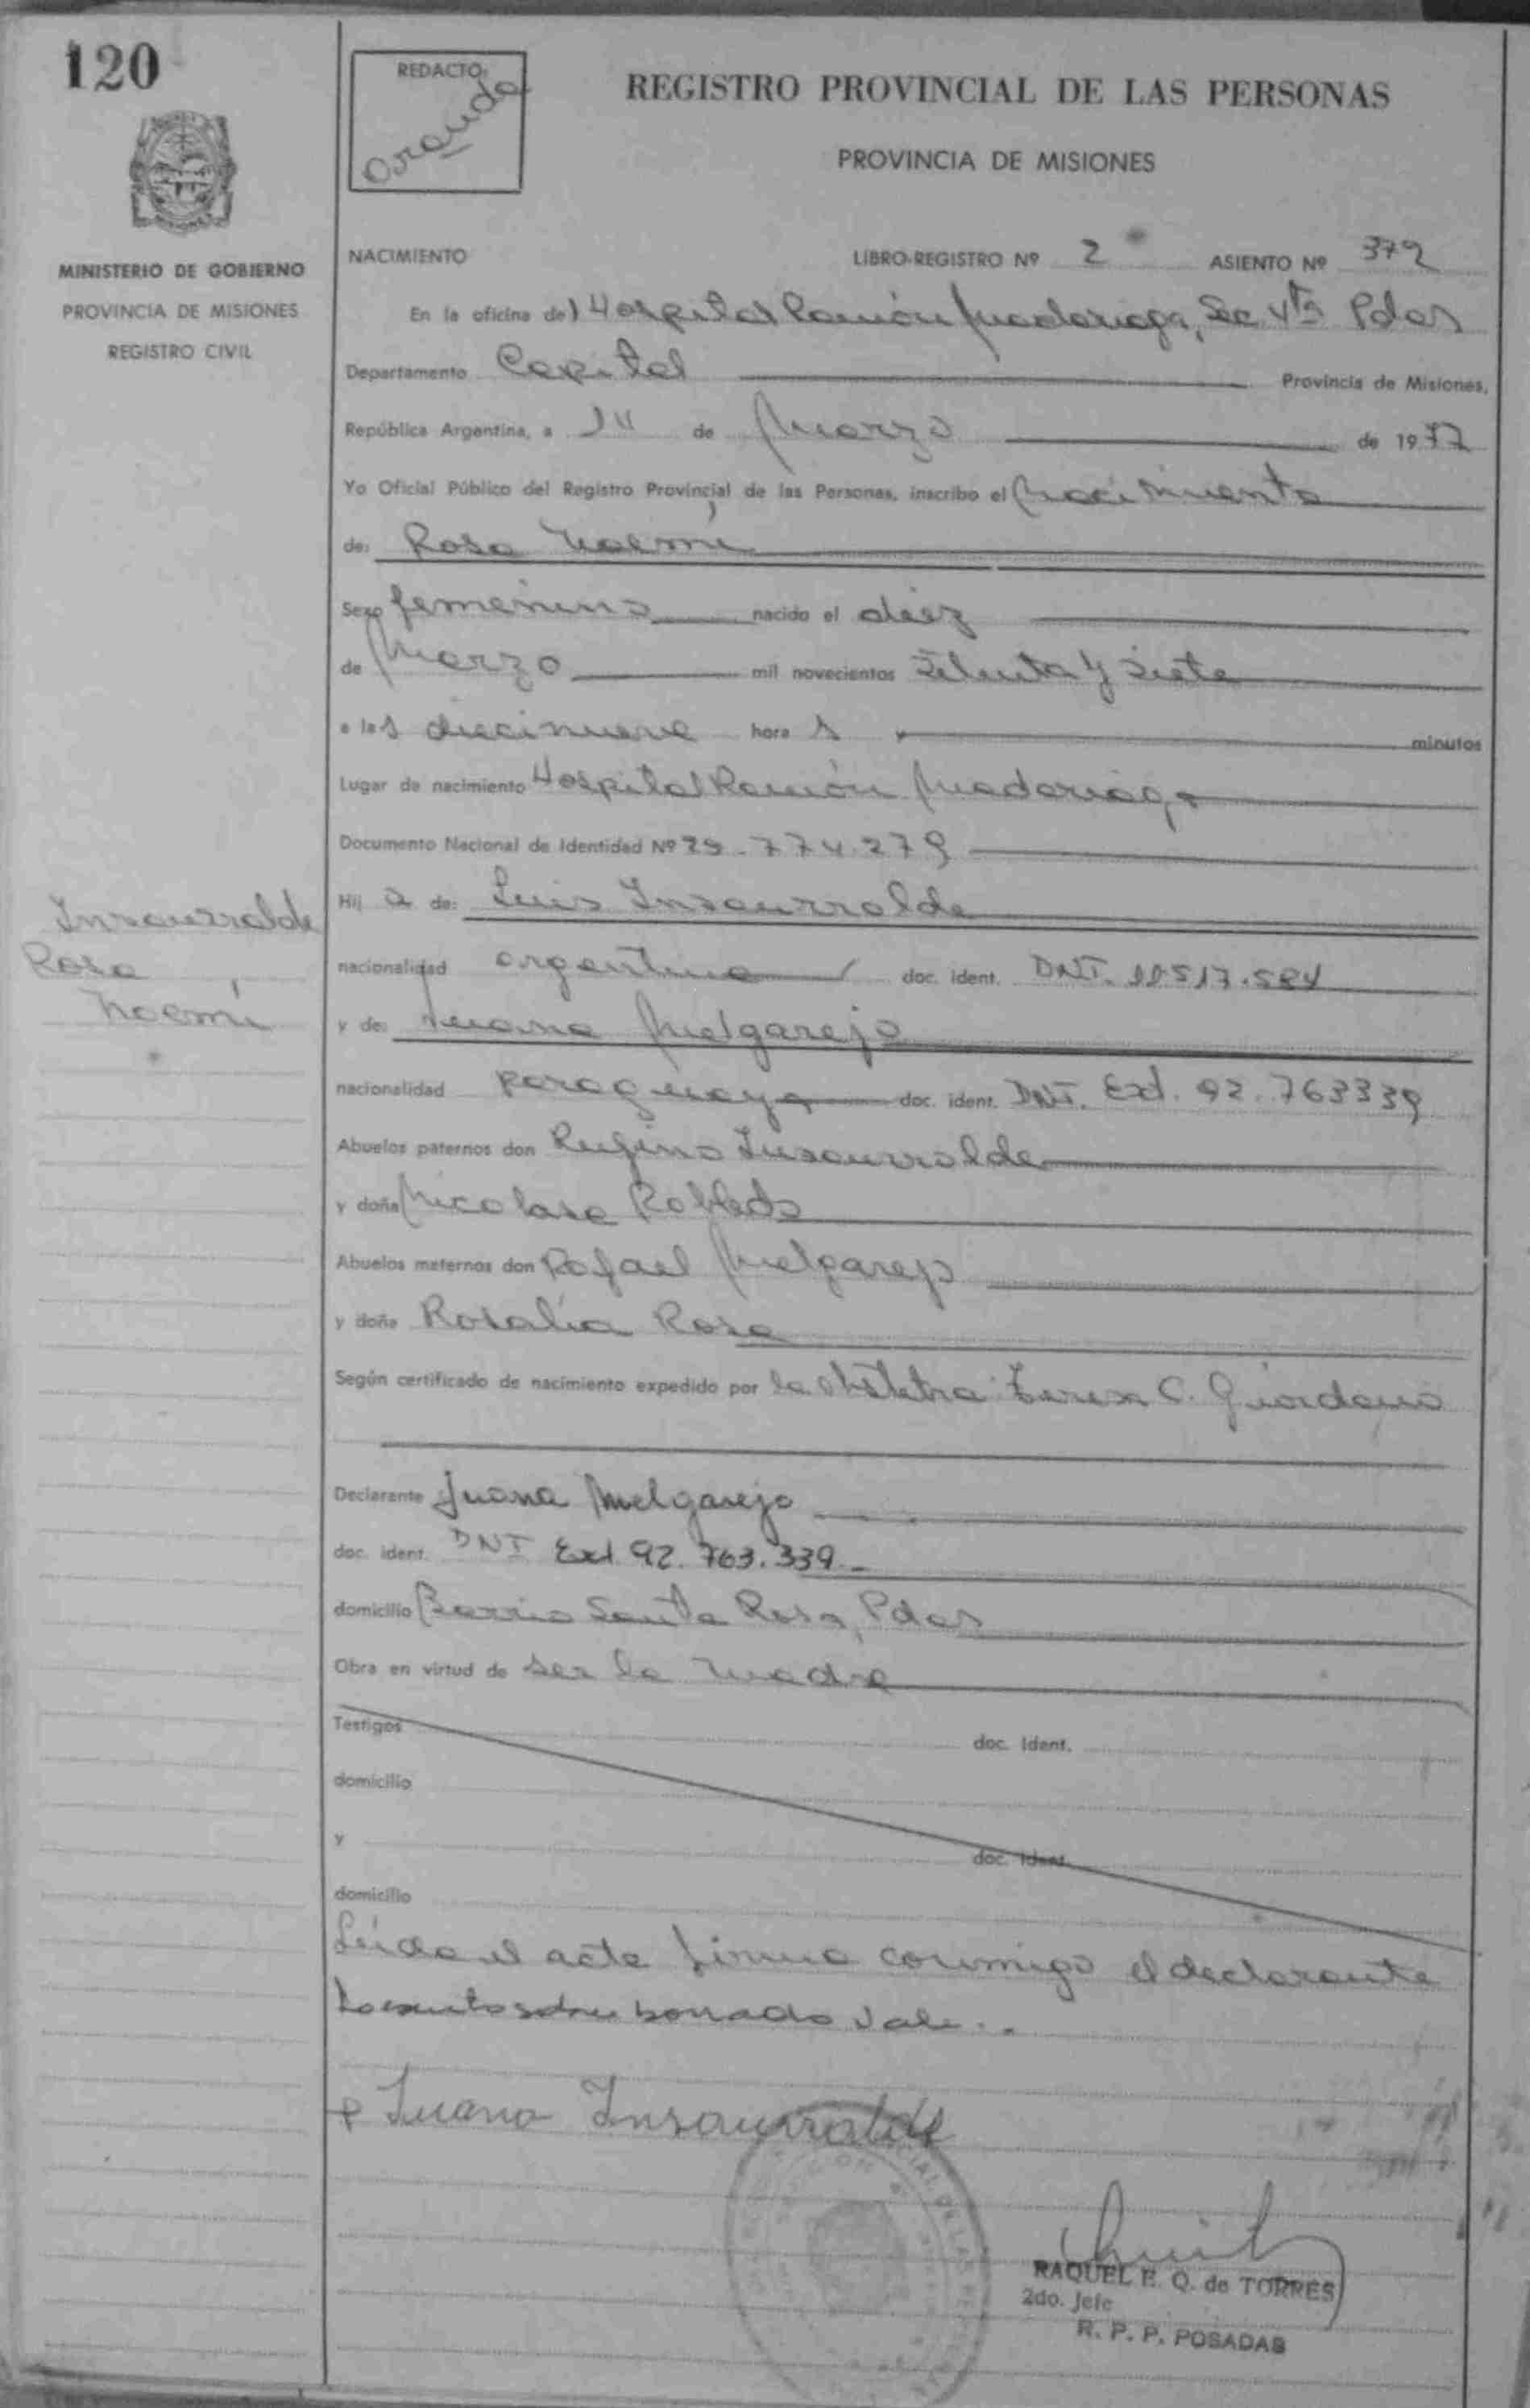 120
REDACTO:
Aranda
REGISTRO PROVINCIAL DE LAS PERSONAS
PROVINCIA DE MISIONES
MINISTERIO DE GOBIERNO
PROVINCIA DE MISIONES
REGISTRO CIVIL
NACIMIENTO LIBRO-REGISTRO Nº 2 ASIENTO Nº 372
En la oficina del Hospital Ramón Madariaga, Sec 4ta Pdas
Departamento Capital Provincia de Misiones,
República Argentina, a 14 de Marzo de 1977
Yo Oficial Público del Registro Provincial de las Personas, inscribo el Nacimiento
de: Rosa Noemí
Sexo femenino nacido el diez
de Marzo mil novecientos setenta y siete
a las diecinueve hora s minutos
Lugar de nacimiento Hospital Ramón Madariaga
Documento Nacional de Identidad Nº 25.774.279
Insaurralde
Rosa
Noemí
Hij a de: Luis Insaurralde
nacionalidad argentina doc. ident. DNI. 10517.584
y de: Juana Melgarejo
nacionalidad paraguaya doc. ident. DNI. Ext. 92.763339
Abuelos paternos don Rufino Insaurralde
y doña Nicolasa Robledo
Abuelos maternos don Rafael Melgarejo
y doña Rosalía Rosa
Según certificado de nacimiento expedido por la obstetra Teresa C. Giordano
Declarante Juana Melgarejo
doc. ident. DNI Ext 92.763.339.-
domicilio Barrio Santa Rosa, Pdas
Obra en virtud de ser la madre
Testigos doc. Ident.
domicilio
y doc. Ident.
domicilio
Leida el acta firma conmigo el declarante
sobre borrado vale..
Juana Insaurralde
RAQUEL E. Q. de TORRES
2do. Jefe
R. P. P. POSADAS